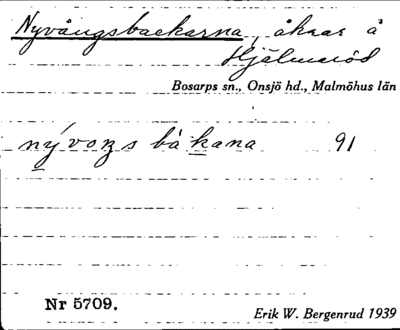 Nyvångsbackarna, åkrar å
Hjälmaröd
Bosarps sn., Onsjö hd., Malmöhus län
nývoŋs bákana 91
Nr 5709.
Erik W. Bergenrud 1939